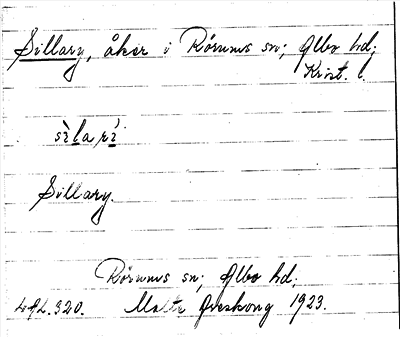 Sillary, åker i Rörums sn; Albo hd;
Krist. l.
sìlarí
Sillary.
Rörums sn; Albo hd;
320. Malte 1923.